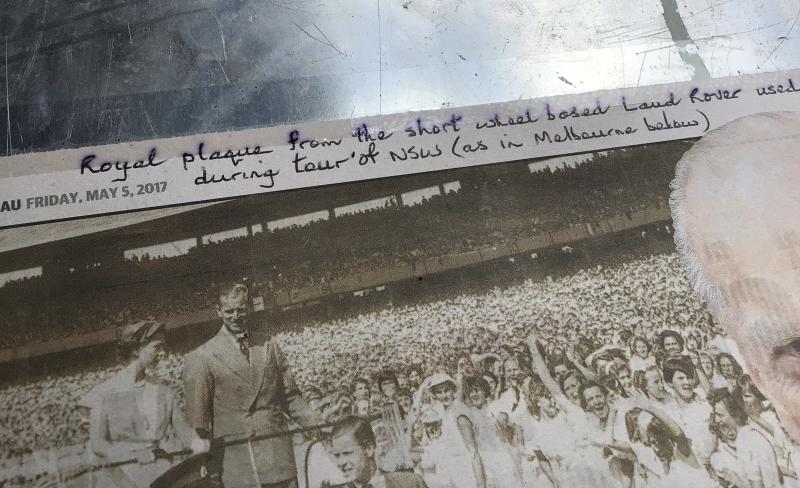 Royal plaque from the short wheel based Land Rover used
during tour of NSW (as in Melbourne below)
AU FRIDAY, MAY 5, 2017